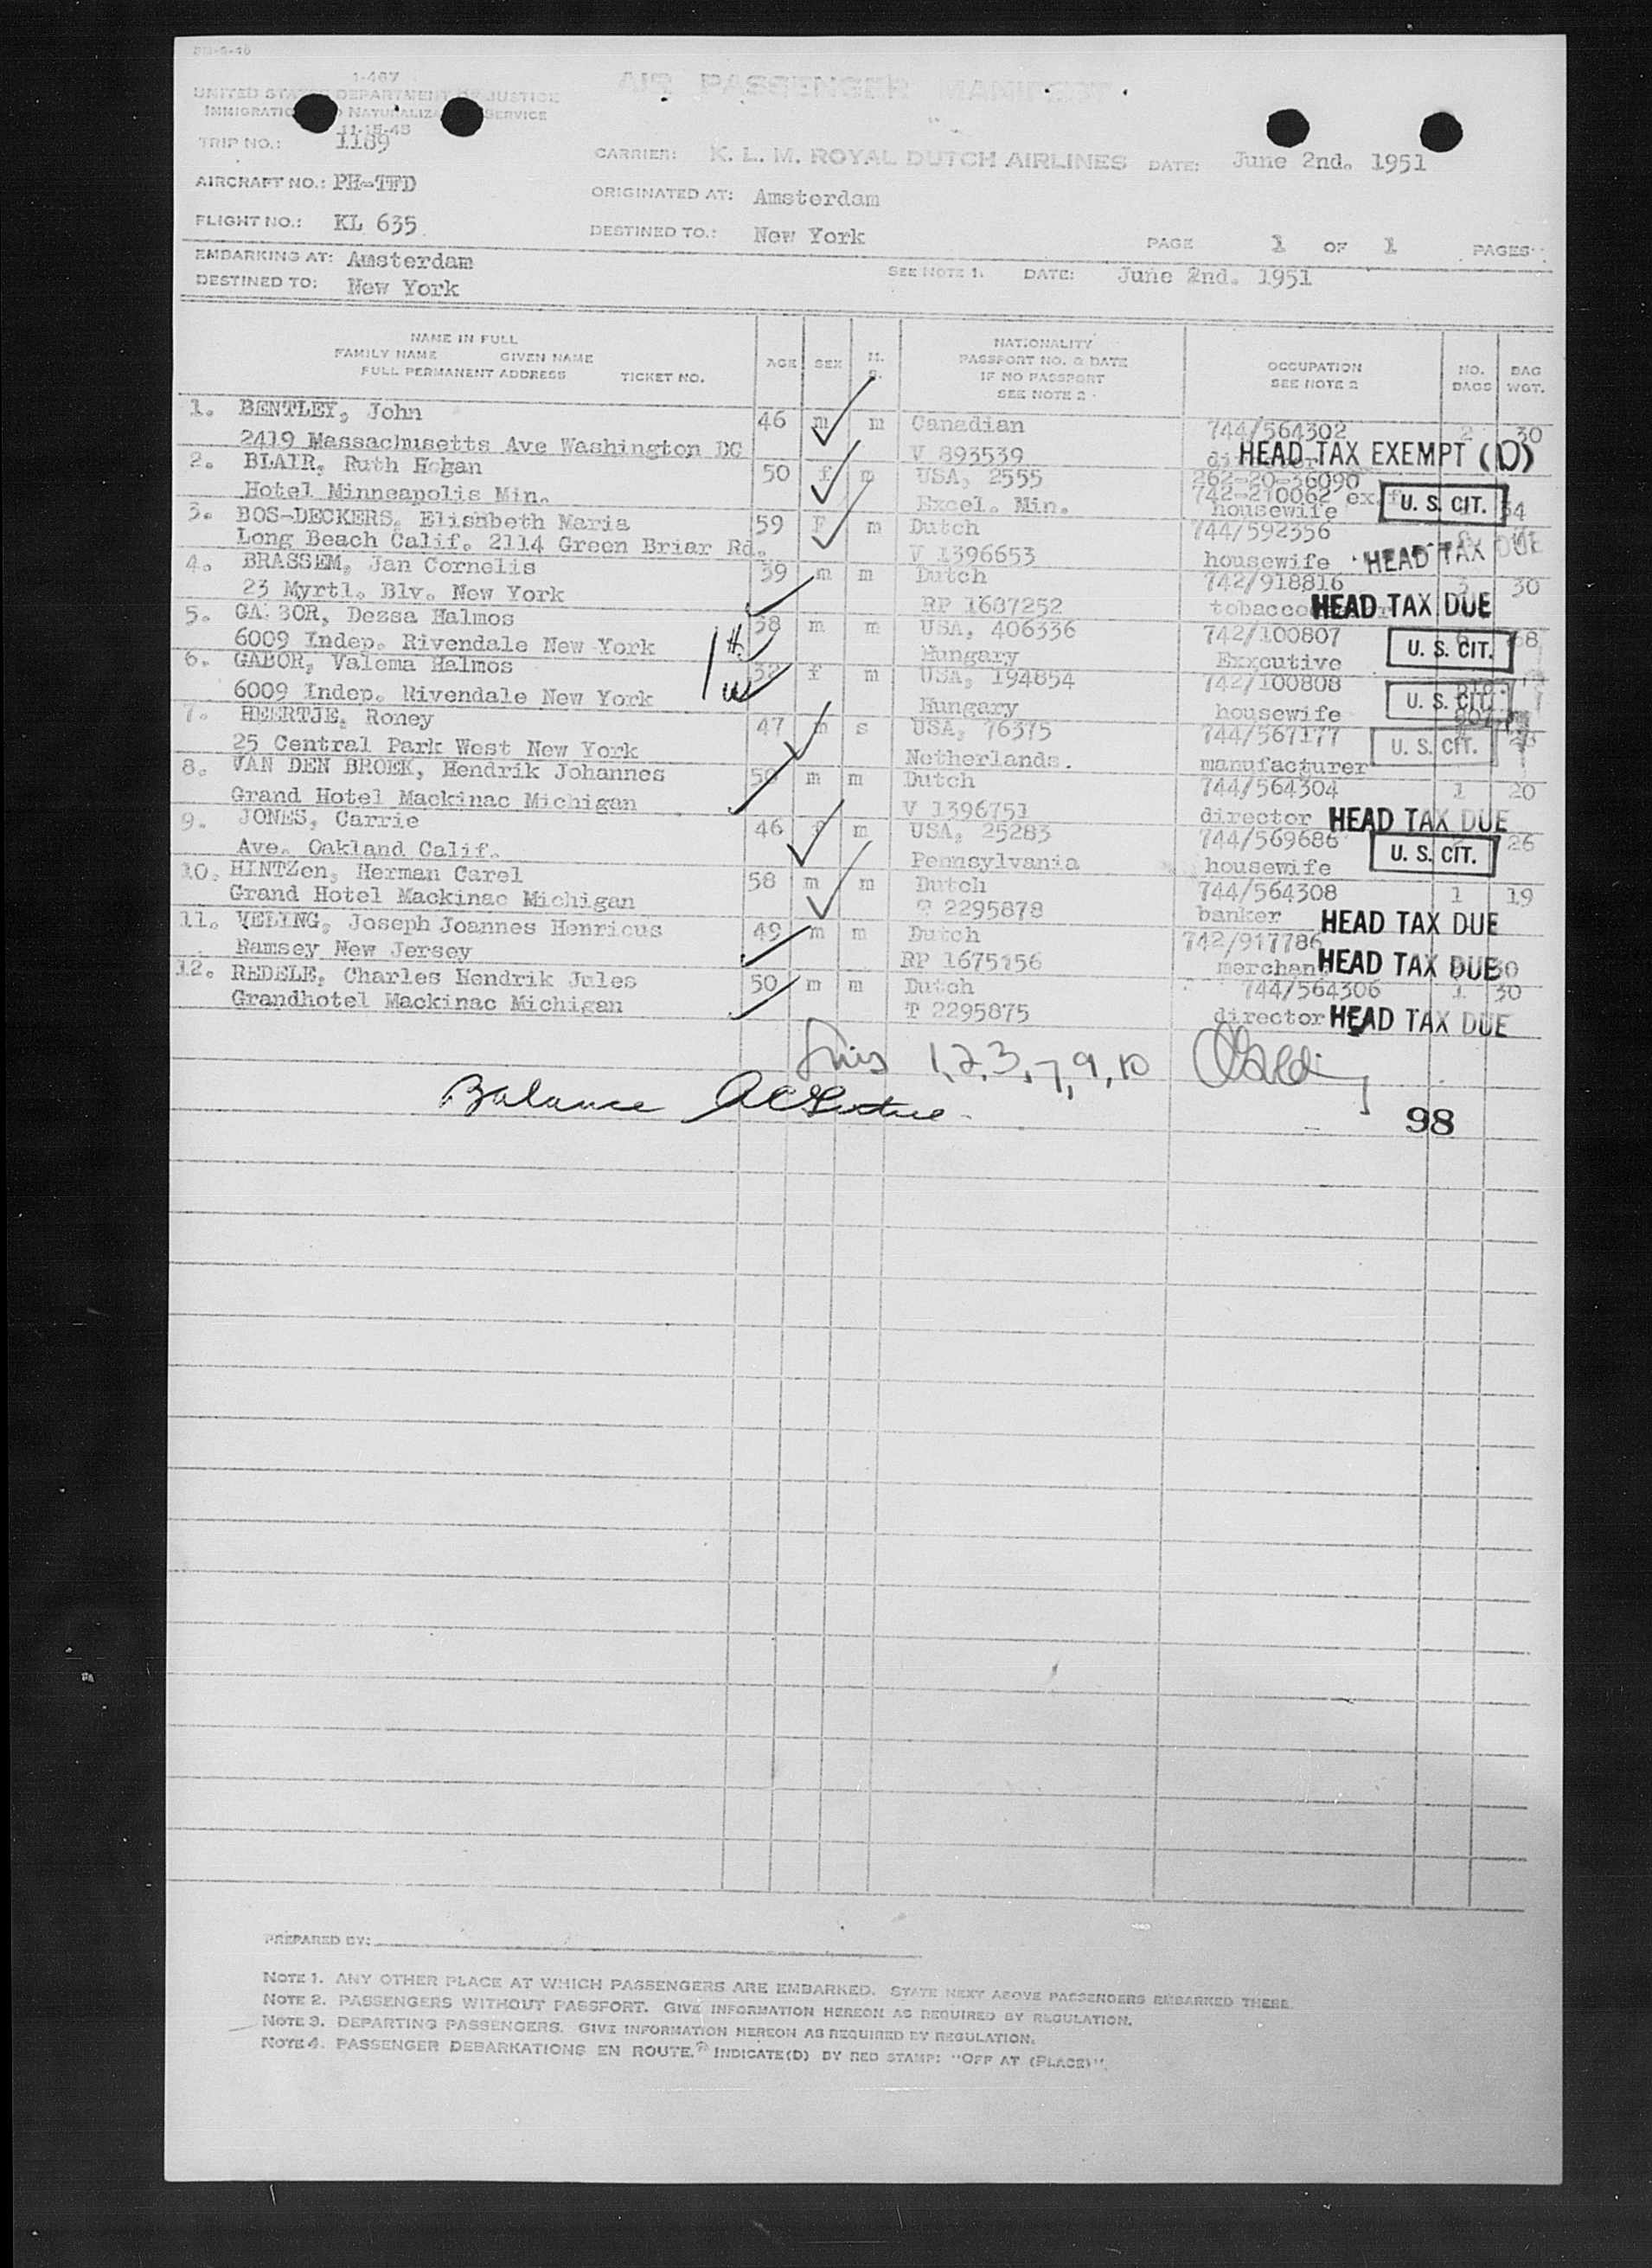 1-467
UNITED STATES DEPARTMENT OF JUSTICE
IMMIGRATION NATURALIZA SERVICE
11-15-45
AIR PASSENGER MANIFEST
TRIP NO.: 1189
CARRIER: K. L. M. ROYAL DUTCH AIRLINES DATE: June 2nd. 1951
AIRCRAFT NO.: PH-TFD
ORIGINATED AT: Amsterdam
FLIGHT NO.: KL 635
DESTINED TO.: New York
PAGE 1 OF 1 PAGES
EMBARKING AT: Amsterdam
SEE NOTE 1. DATE: June 2nd. 1951
DESTINED TO: New York
NAME IN FULL
FAMILY NAME GIVEN NAME
FULL PERMANENT ADDRESS TICKET NO.
AGE SEX M. S.
NATIONALITY
PASSPORT NO. & DATE
IF NO PASSPORT
SEE NOTE 2
OCCUPATION
SEE NOTE 2
NO. BAGS
BAG WGT.
1. BENTLEY, John 46 m m Canadian 744/564302 2 30
2419 Massachusetts Ave Washington DC V 893539 HEAD TAX EXEMPT (D)
2. BLAIR, Ruth Hogan 50 f m USA, 2555 262-20-36090
742-210062 ex.
Hotel Minneapolis Min. Excel. Min. housewife U. S. CIT. 34
3. BOS-DECKERS, Elisabeth Maria 59 F m Dutch 744/592356
Long Beach Calif. 2114 Green Briar Rd. V 1396653 housewife HEAD TAX DUE
4. BRASSEM, Jan Cornelis 39 m m Dutch 742/918816 3 30
23 Myrtl. Blv. New York RP 1687252 tobacco HEAD TAX DUE
5. GA BOR, Dezsa Halmos 38 m m USA, 406336 742/100807
6009 Indep. Rivendale New York Hungary Exxcutive U. S. CIT.
6. GABOR, Valema Halmos 32 f m USA, 194854 742/100808
6009 Indep. Rivendale New York Hungary housewife U. S. CIT.
7. HEERTJE, Roney 47 m s USA, 76375 744/567177 U. S. CIT.
25 Central Park West New York Netherlands. manufacturer
8. VAN DEN BROEK, Hendrik Johannes 50 m m Dutch 744/564304 1 20
Grand Hotel Mackinac Michigan V 1396751 director HEAD TAX DUE
9. JONES, Carrie 46 f m USA, 25283 744/569686 26
Ave. Oakland Calif. Pennsylvania housewife U. S. CIT.
10. HINTZen, Herman Carel 58 m m Dutch 744/564308 1 19
Grand Hotel Mackinac Michigan T 2295878 banker HEAD TAX DUE
11. VELING, Joseph Joannes Henricus 49 m m Dutch 742/917786
Ramsey New Jersey RP 1675156 merchant HEAD TAX DUE 30
12. REDELE, Charles Hendrik Jules 50 m m Dutch 744/564306 1 30
Grandhotel Mackinac Michigan T 2295875 director HEAD TAX DUE
1, 2, 3, 7, 9, 10
Balance
98
PREPARED BY:
NOTE 1. ANY OTHER PLACE AT WHICH PASSENGERS ARE EMBARKED. STATE NEXT ABOVE PASSENGERS EMBARKED THERE.
NOTE 2. PASSENGERS WITHOUT PASSPORT. GIVE INFORMATION HEREON AS REQUIRED BY REGULATION.
NOTE 3. DEPARTING PASSENGERS. GIVE INFORMATION HEREON AS REQUIRED BY REGULATION.
NOTE 4. PASSENGER DEBARKATIONS EN ROUTE. INDICATE(D) BY RED STAMP: "OFF AT (PLACE)".